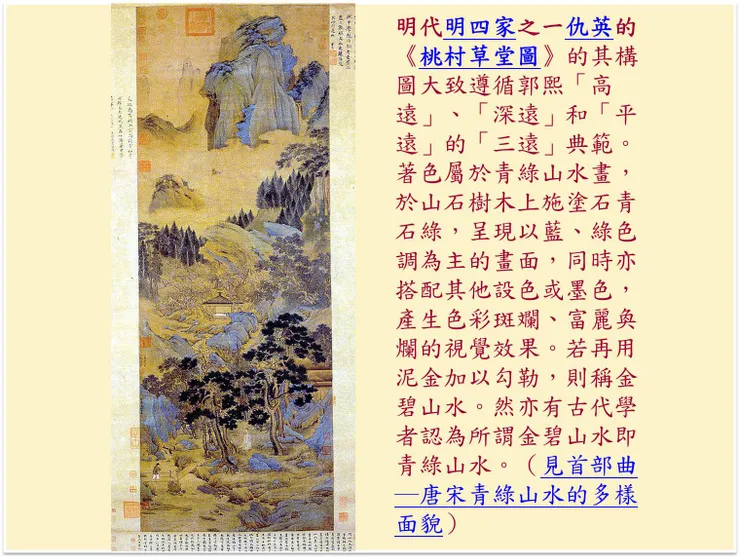 明代明四家之一仇英的
《桃村草堂圖》的其構
圖大致遵循郭熙「高
遠」、「深遠」和「平
遠」的「三遠」典範。
著色屬於青綠山水畫，
於山石樹木上施塗石青
石綠，呈現以藍、綠色
調為主的畫面，同時亦
搭配其他設色或墨色，
產生色彩斑斕、富麗奐
爛的視覺效果。若再用
泥金加以勾勒，則稱金
碧山水。然亦有古代學
者認為所謂金碧山水即
青綠山水。（見首部曲
—唐宋青綠山水的多樣
面貌）